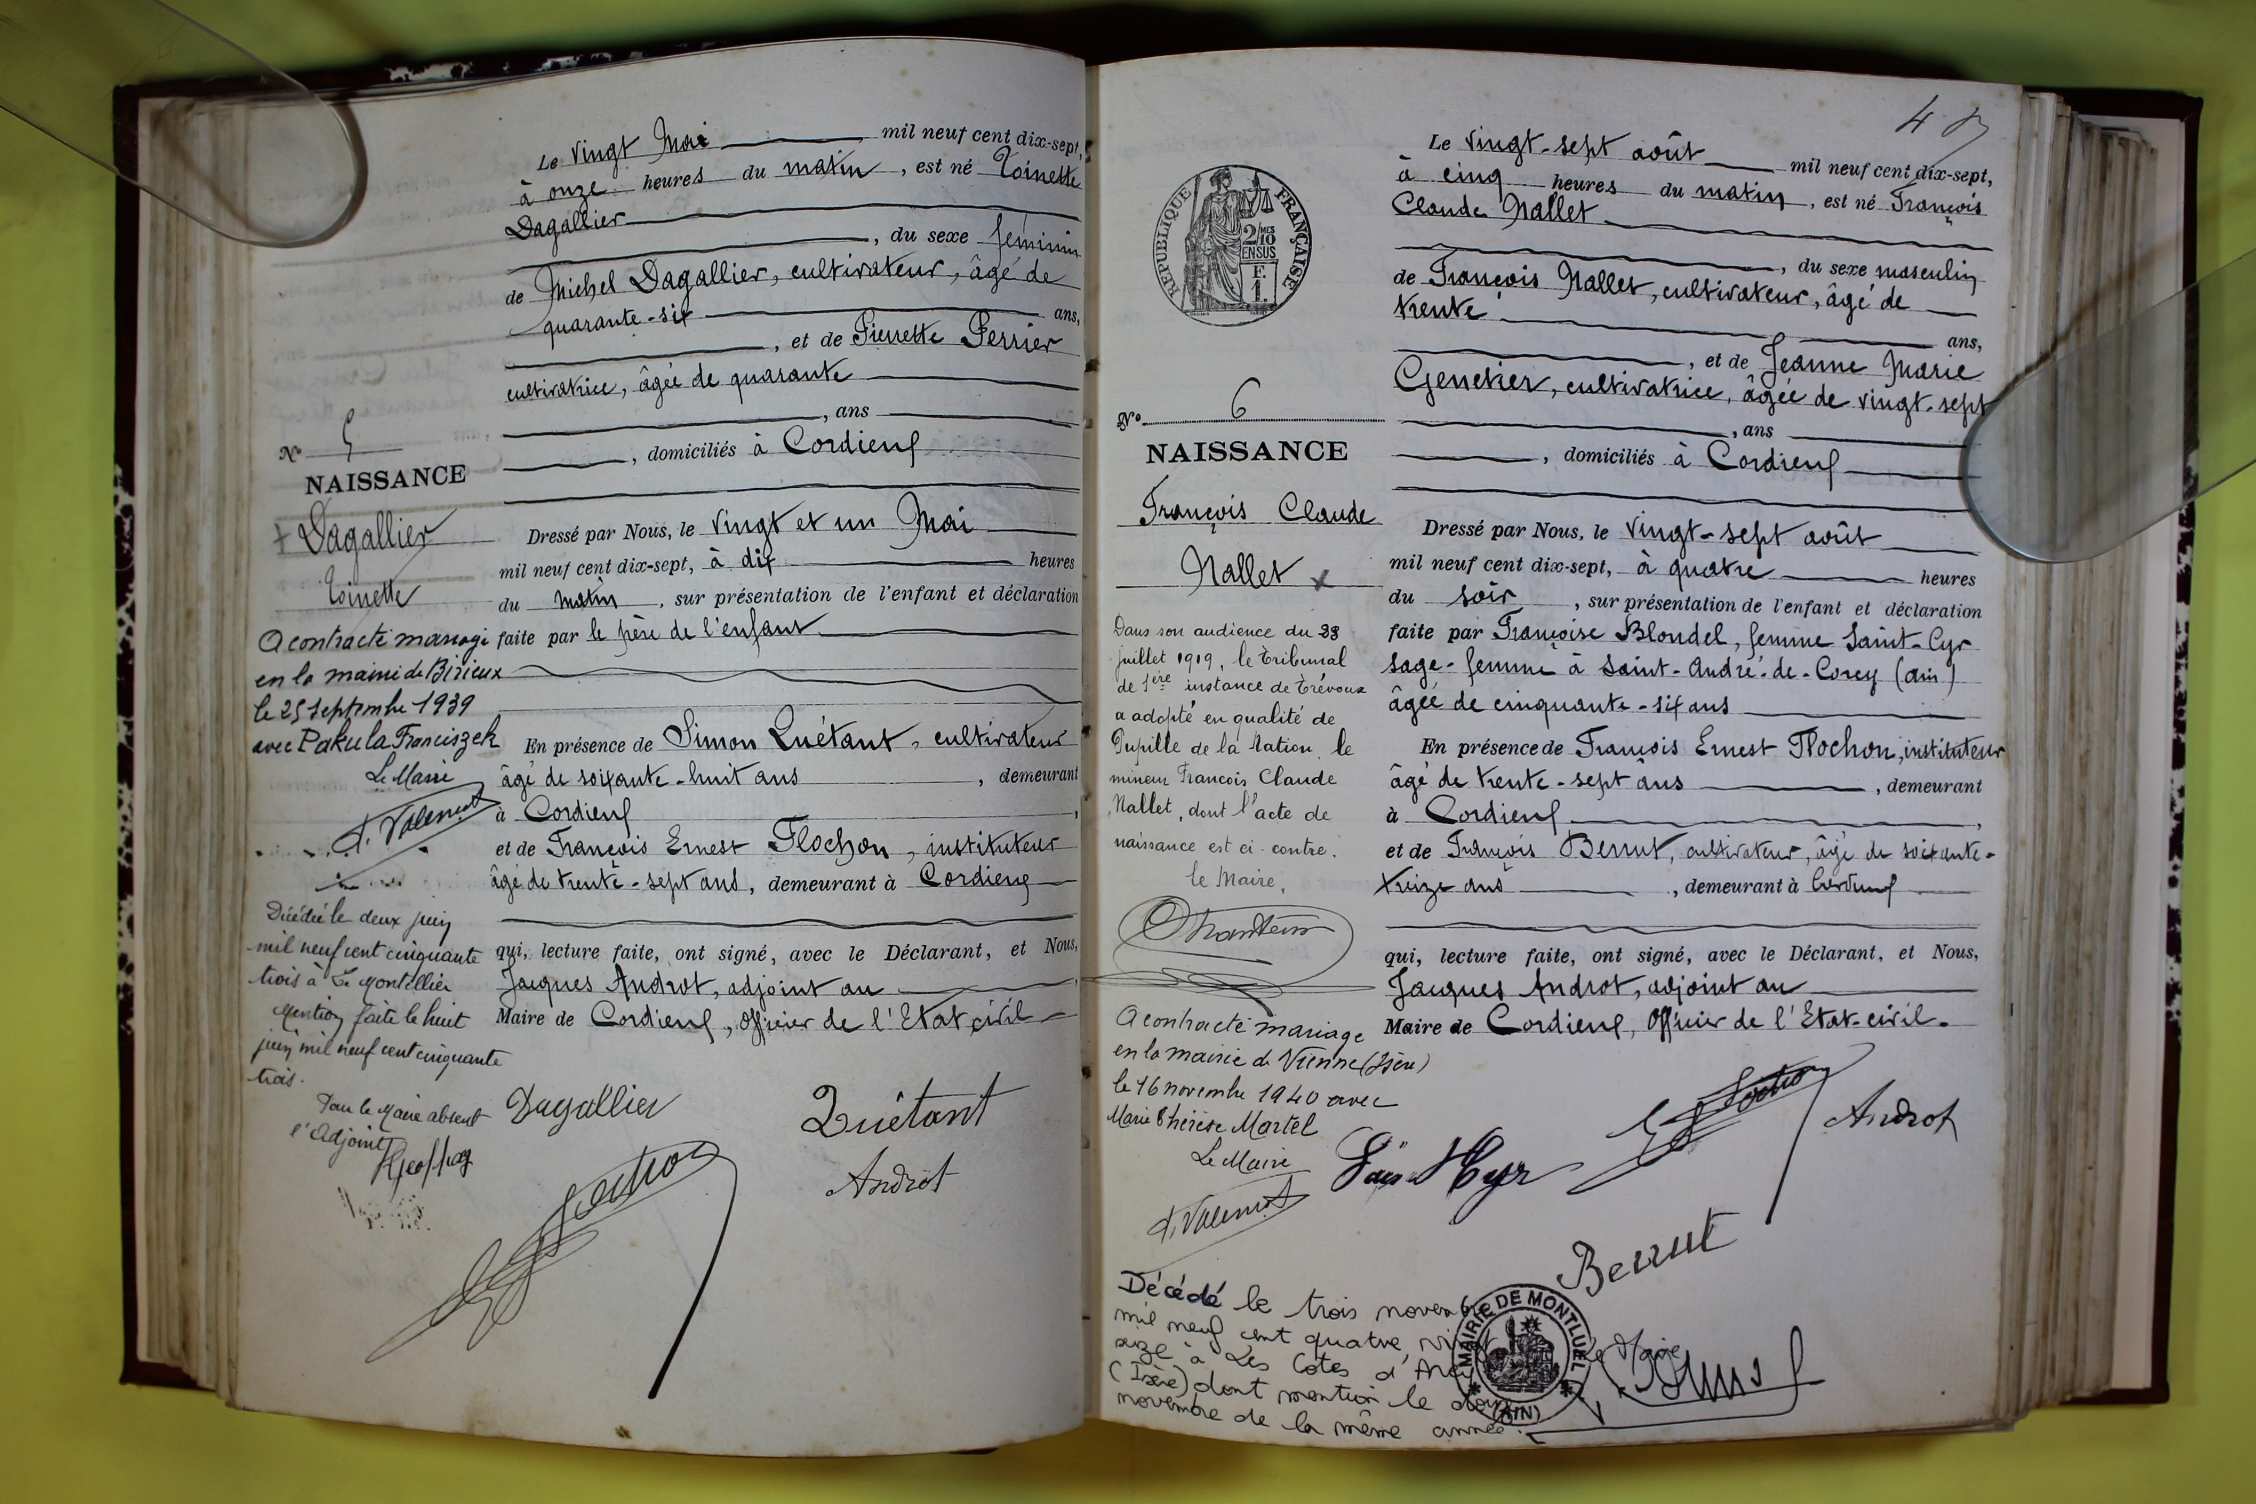 Le vingt Mai mil neuf cent dix-sept,
à onze heures du matin, est né Toinette
Dagallier
, du sexe féminin
de Michel Dagallier, cultivateur, âgé de
quarante-six ans,
, et de Pierrette Perrier
cultivatrice, âgée de quarante
, ans
, domiciliés à Cordieux
Dressé par Nous, le vingt et un Mai
mil neuf cent dix-sept, à dix heures
du matin, sur présentation de l'enfant et déclaration
faite par le père de l'enfant
En présence de Simon Quétant, cultivateur
âgé de soixante-huit ans, demeurant
à Cordieux,
et de François Ernest Flochon, instituteur
âgé de trente-sept ans, demeurant à Cordieux
qui, lecture faite, ont signé, avec le Déclarant, et Nous,
Jacques Androt, adjoint au
Maire de Cordieux, Officier de l'Etat civil
Dagallier
Quétant
Androt
N° 5
NAISSANCE
Dagallier
Toinette
A contracté mariage
en la mairie de Birieux
le 25 septembre 1939
avec Pakula Franciszek
Le Maire
Décédée le deux juin
mil neuf cent cinquante
trois à Le Montellier
Mention faite le huit
juin mil neuf cent cinquante
trois.
Pour le Maire absent
l'Adjoint
48
Le vingt-sept août mil neuf cent dix-sept,
à cinq heures du matin, est né François
Claude Nallet
, du sexe masculin
de François Nallet, cultivateur, âgé de
trente
ans,
, et de Jeanne Marie
Genetier, cultivatrice, âgée de vingt-sept
, ans
, domiciliés à Cordieux
Dressé par Nous, le vingt-sept août
mil neuf cent dix-sept, à quatre heures
du soir, sur présentation de l'enfant et déclaration
faite par Françoise Blondel, femme Saint-Cyr
sage-femme à Saint-André-de-Corcy (Ain)
âgée de cinquante-six ans
En présence de François Ernest Flochon, instituteur
âgé de trente-sept ans, demeurant
à Cordieux,
et de François Berrut, cultivateur, âgé de soixante-
treize ans, demeurant à Cordieux
qui, lecture faite, ont signé, avec le Déclarant, et Nous,
Jacques Androt, adjoint au
Maire de Cordieux, Officier de l'Etat-civil.
Androt
Berrut
REPUBLIQUE FRANÇAISE
2/10 MES
EN SUS
F.
1.
N° 6
NAISSANCE
François Claude
Nallet x
Dans son audience du 28
juillet 1919, le Tribunal
de 1ère instance de Trévoux
a adopté en qualité de
Pupille de la Nation, le
mineur François Claude
Nallet, dont l'acte de
naissance est ci-contre.
le Maire,
A contracté mariage
en la mairie de Vienne (Isère)
le 16 novembre 1940 avec
Marie Thérèse Martel
Le Maire
Décédé le trois novembre
mil neuf cent quatre vingt
seize à Les Cotes d'Arey
(Isère) dont mention le douze
novembre de la même année.
Le Maire
MAIRIE DE MONTLUEL
(AIN)